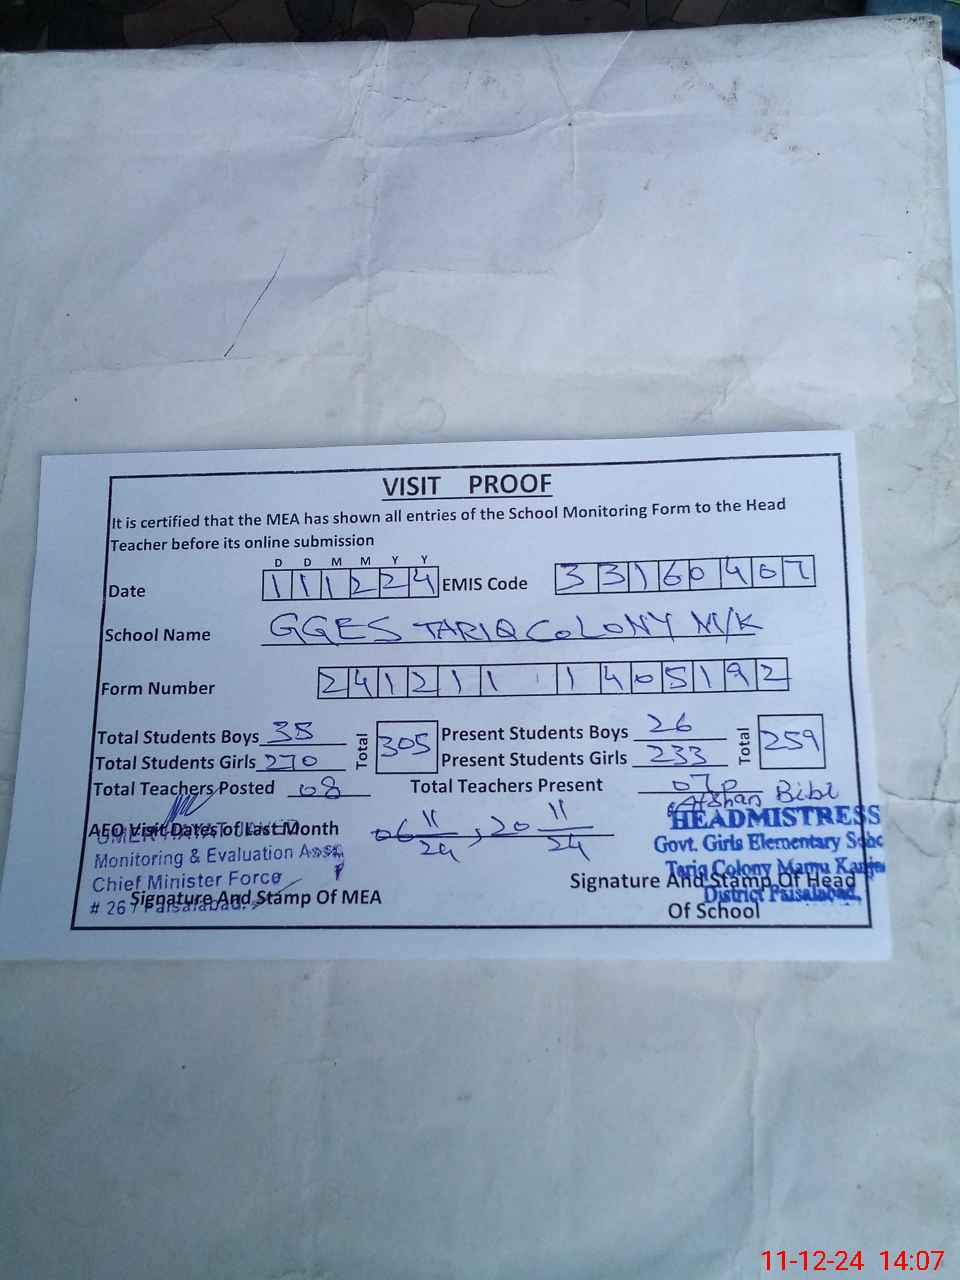 VISIT PROOF
It is certified that the MEA has shown all entries of the School Monitoring Form to the Head
Teacher before its online submission
D D M M Y Y
Date 111224 EMIS Code 33160407
School Name GGES TARIQ COLONY M/K
Form Number 241211 1405192
Total Students Boys 35 Total 305 Present Students Boys 26 Total 259
Total Students Girls 270 Present Students Girls 233
Total Teachers Posted 08 Total Teachers Present 07
Afshan Bibi
AEO Visit Dates of Last Month 06 11/24, 20 11/24
HEADMISTRESS
Govt. Girls Elementary
Tariq Colony Mamu Kanjan
District Faisalabad.
UMER HAYAT
Monitoring & Evaluation Asst.
Chief Minister Force
# 26 / Faisalabad.
Signature And Stamp Of MEA
Signature And Stamp Of Head
Of School
11-12-24 14:07